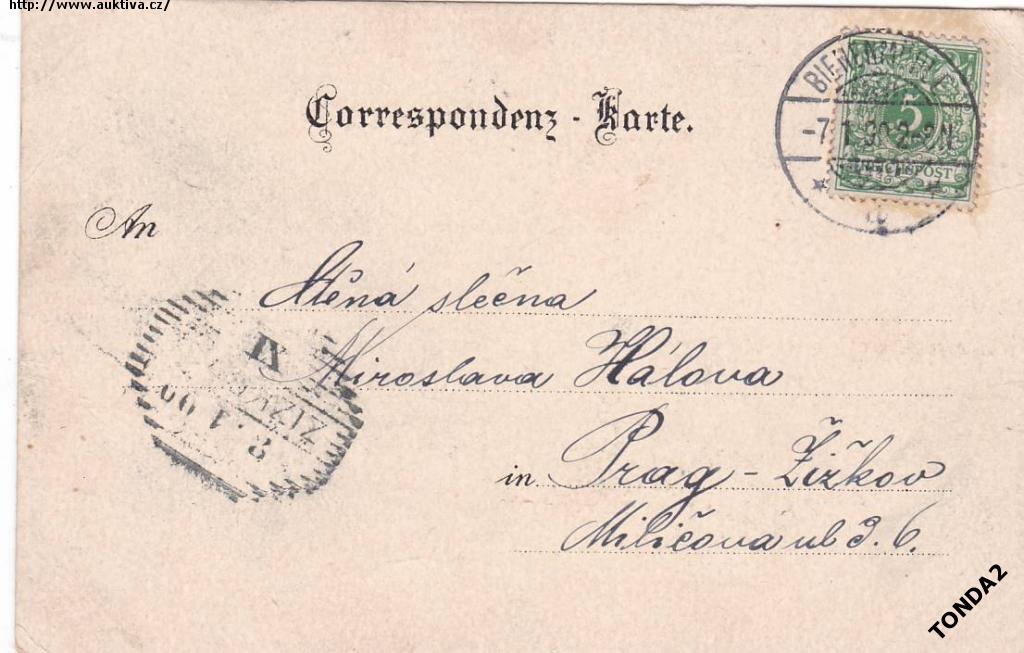 http://www.auktiva.cz/
Correspondenz - Karte.
5
REICHSPOST
-7.1.00.2-3N.
An
Ctěná slečna
Miroslava Hálova
in Prag - Žižkov
Miličova ul 3. 6.
XI
ŽIŽKOV
8.1.00
TONDA2